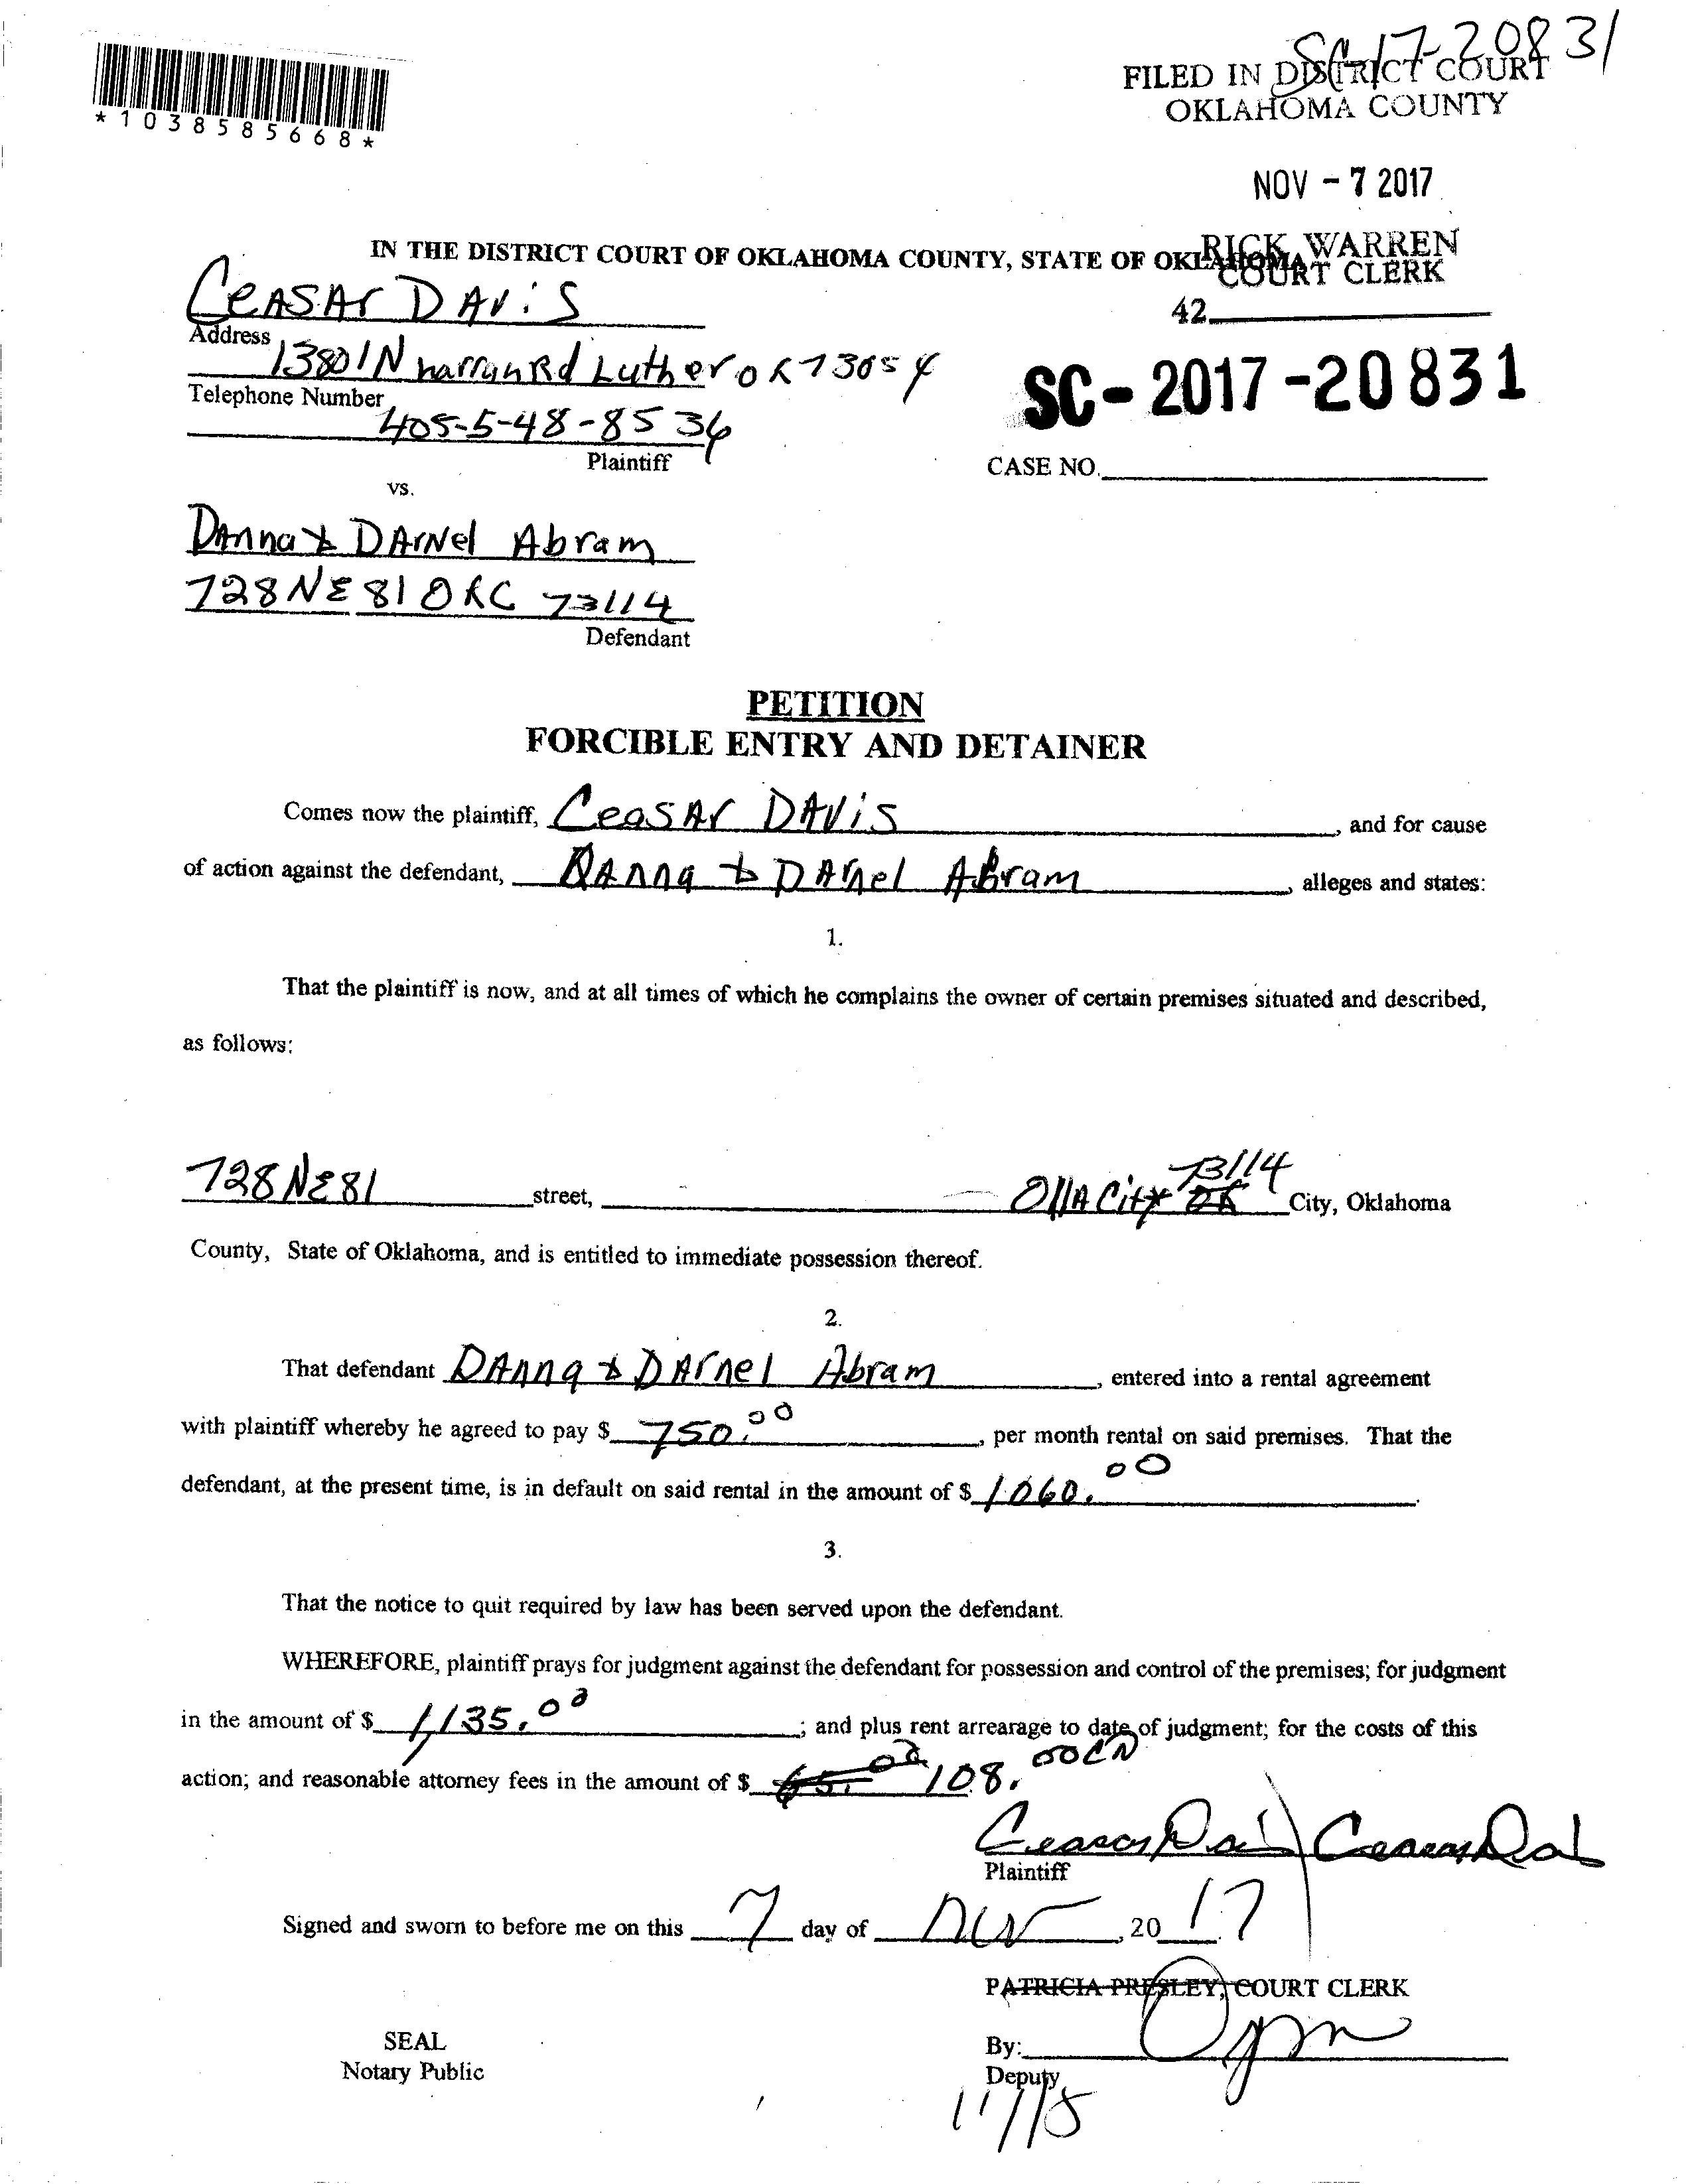 SC-17-20831
FILED IN DISTRICT COURT
OKLAHOMA COUNTY
*1038585668*
NOV - 7 2017
RICK WARREN
COURT CLERK
IN THE DISTRICT COURT OF OKLAHOMA COUNTY, STATE OF OKLAHOMA
CeASAr DAviS
42
Address
13801 N harrah Rd Luther OK 73054
SC-2017-20831
Telephone Number
405-5-48-8534
Plaintiff
CASE NO.
vs.
DAnna & DArNel Abram
728 NE 81 OKC 73114
Defendant
PETITION
FORCIBLE ENTRY AND DETAINER
Comes now the plaintiff, CeaSAr DAViS, and for cause
of action against the defendant, DAnna & DArnel Abram, alleges and states:
1.
That the plaintiff is now, and at all times of which he complains the owner of certain premises situated and described,
as follows:
728 NE 81 street, OklA City 73114 OK City, Oklahoma
County, State of Oklahoma, and is entitled to immediate possession thereof.
2.
That defendant DAnna & DArnel Abram, entered into a rental agreement
with plaintiff whereby he agreed to pay $ 750.00, per month rental on said premises. That the
defendant, at the present time, is in default on said rental in the amount of $ 1060.00.
3.
That the notice to quit required by law has been served upon the defendant.
WHEREFORE, plaintiff prays for judgment against the defendant for possession and control of the premises; for judgment
in the amount of $ 1,135.00; and plus rent arrearage to date of judgment; for the costs of this
action; and reasonable attorney fees in the amount of $ 65.00 108.00 CD
Plaintiff
Signed and sworn to before me on this 7 day of Nov, 20 17
PATRICIA PRESLEY, COURT CLERK
SEAL
By:
Notary Public
Deputy
11/15